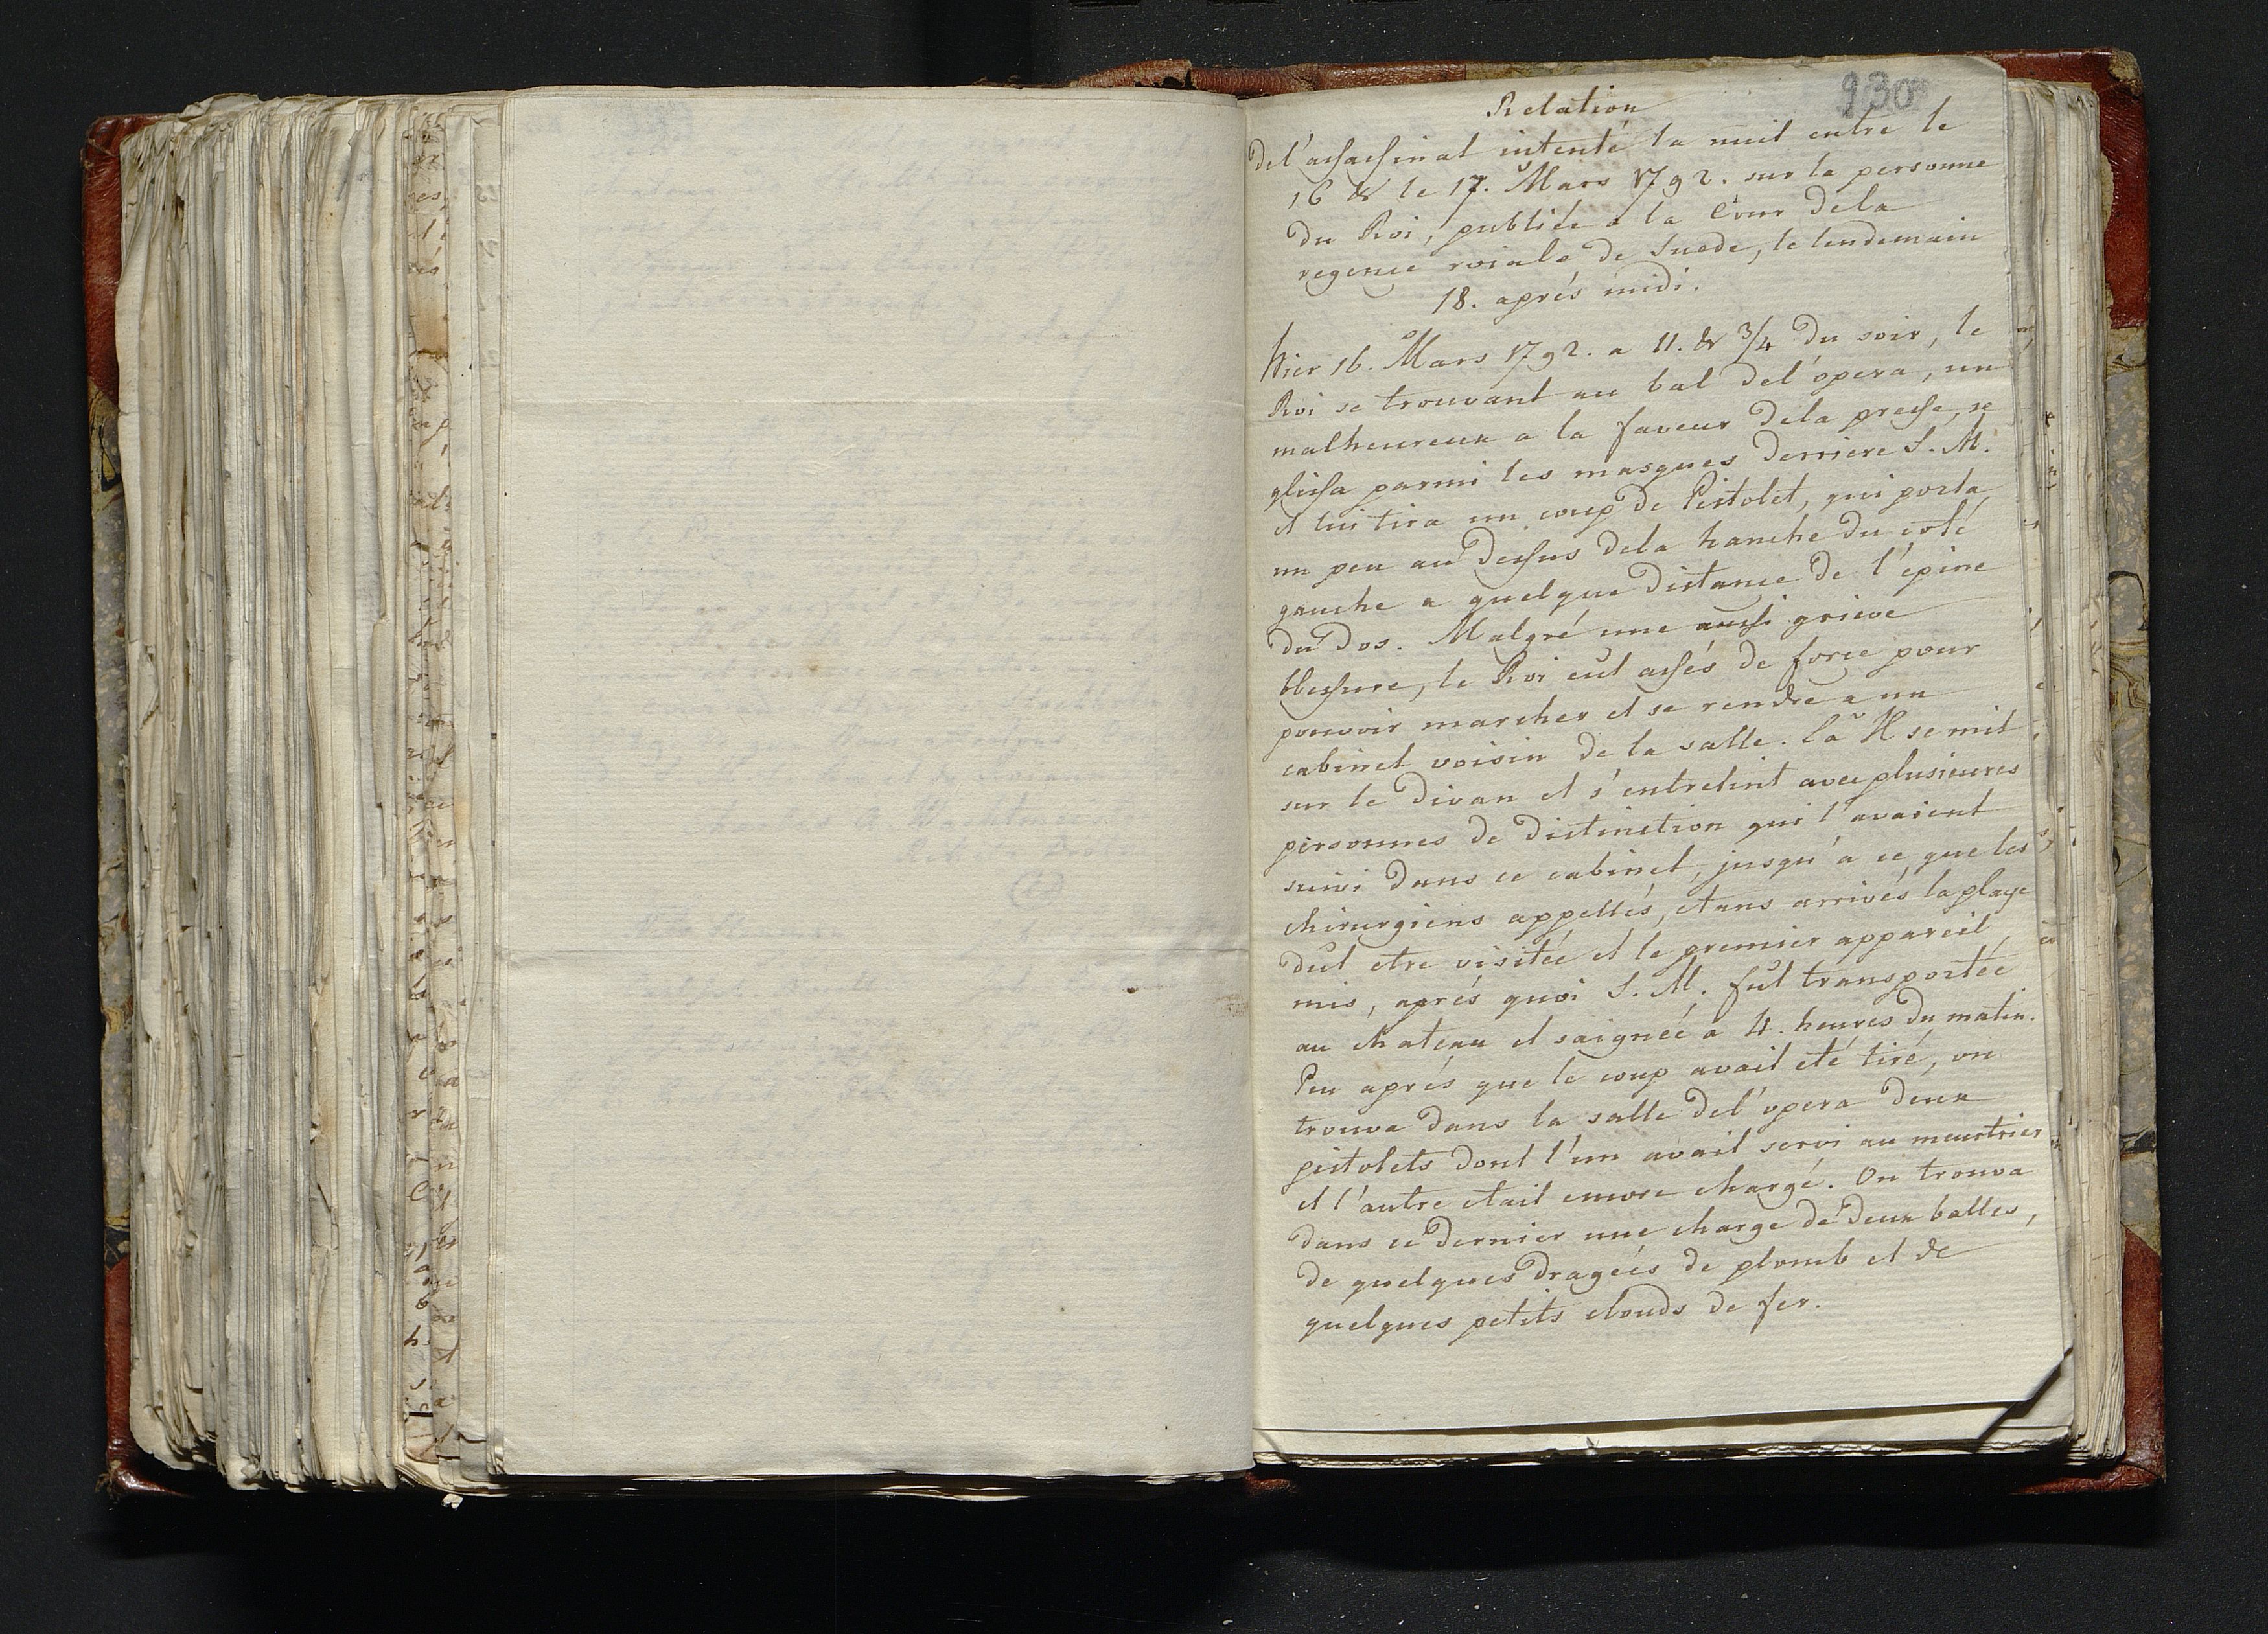 930
Relation
de l'assassinat intenté la nuit entre le
16 & le 17. Mars 1792. sur la personne
du Roi, publiée a la Cour dela
regence roiale de Suede, le lendemain
18. aprés midi.
Hier 16. Mars 1792. a 11. & 3/4 du soir, le
Roi se trouvant au bal del'opera, un
malheureux a la faveur dela presse, se
glissa parmi les masques derriere S. M.
et lui tira un coup de Pistolet, qui porta
un peu au dessus dela hanche du coté
gauche a quelque distance de l'épine
du dos. Malgré une aussi grieve
blessure, le Roi eut assés de force pour
pouvoir marcher et se rendre a un
cabinet voisin de la salle. Là Il se mit
sur le divan et s'entretint avec plusieures
personnes de distinction qui l'avaient
suivi dans ce cabinet, jusqu'a ce que les
chirurgiens appellés, etans arrivés la playe
dut etre visitée et le premier appareil
mis, aprés quoi S. M. fut transportée
au chateau et saignée a 4. heures du matin.
Peu aprés que le coup avait eté tiré, on
trouva dans la salle del'opera deux
pistolets dont l'un avait servi au meurtrier
et l'autre etait encore chargé. On trouva
dans ce dernier une charge de deux balles,
de quelques dragées de plomb et de
quelques petits clouds de fer.